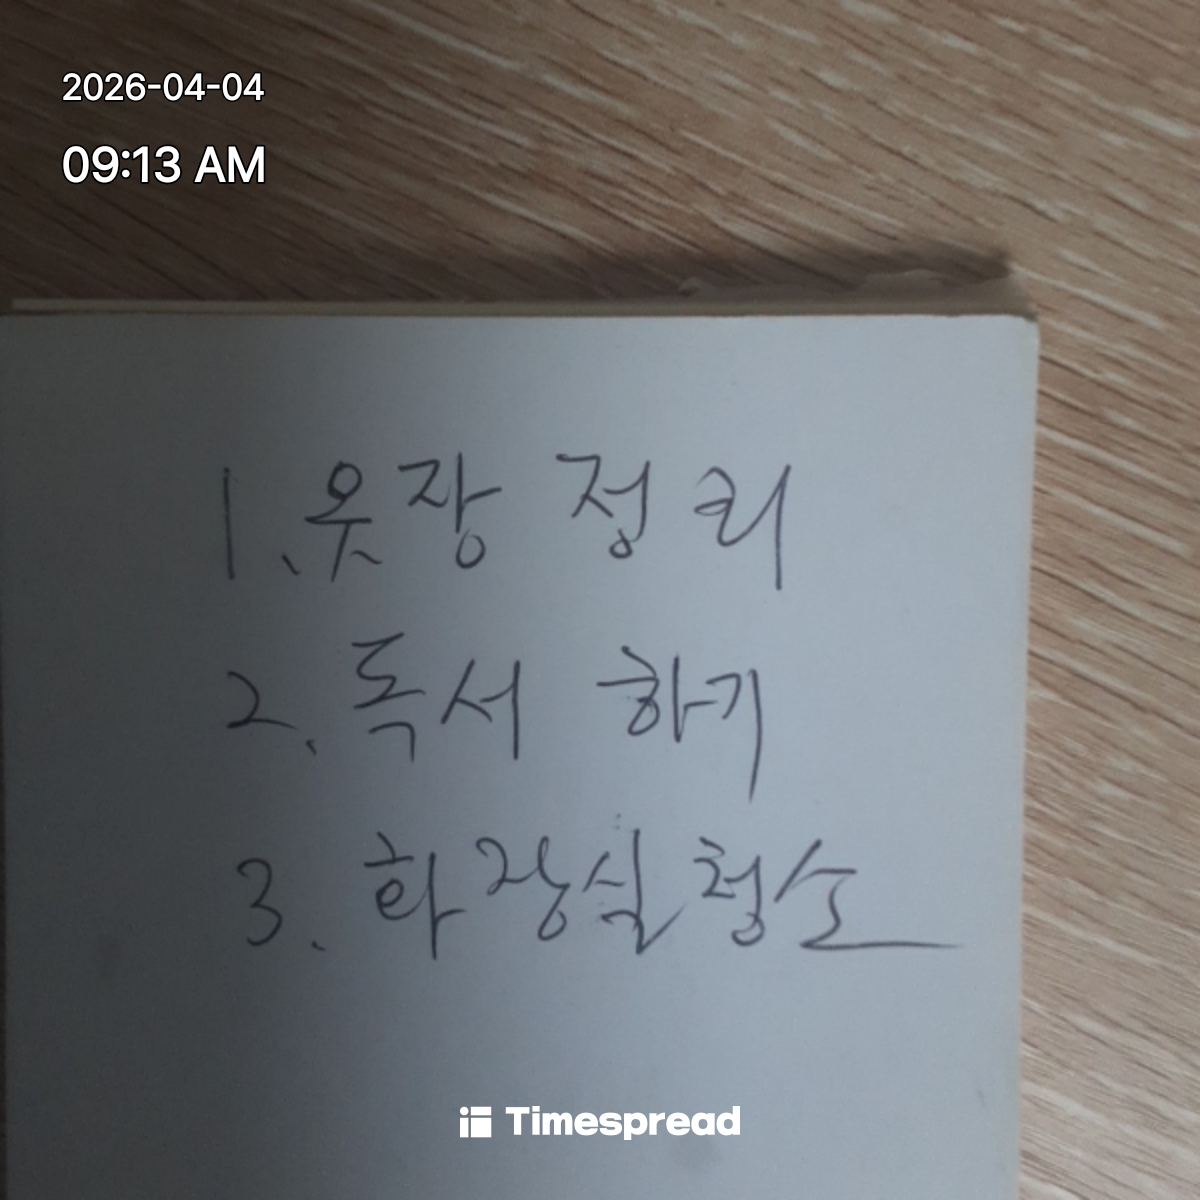 2026-04-04
09:13 AM
1. 옷장 정리
2. 독서 하기
3. 화장실 청소
Timespread